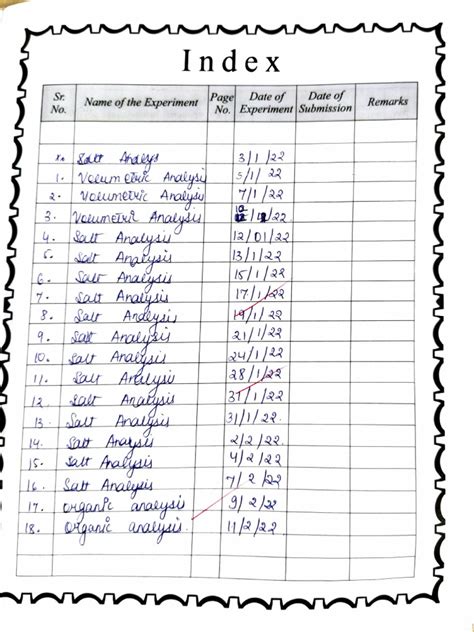 Index
Sr. No. Name of the Experiment Page No. Date of Experiment Date of Submission Remarks
Salt Analys 3/1/22
1. Volumetric Analysis 5/1/22
2. Volumetric Analysis 7/1/22
3. Volumetric Analysis /22
4. Salt Analysis 12/01/22
5. Salt Analysis 13/1/22
6. Salt Analysis 15/1/22
7. Salt Analysis 17/1/22
8. Salt Analysis 19/1/22
9. Salt Analysis 21/1/22
10. Salt Analysis 24/1/22
11. Salt Analysis 28/1/22
12. Salt Analysis 31/1/22
13. Salt Analysis 31/1/22.
14. Salt Analysis 2/2/22
15. Salt Analysis 4/2/22
16. Salt Analysis 7/2/22
17. Organic analysis 9/2/22
18. Organic analysis. 11/2/22